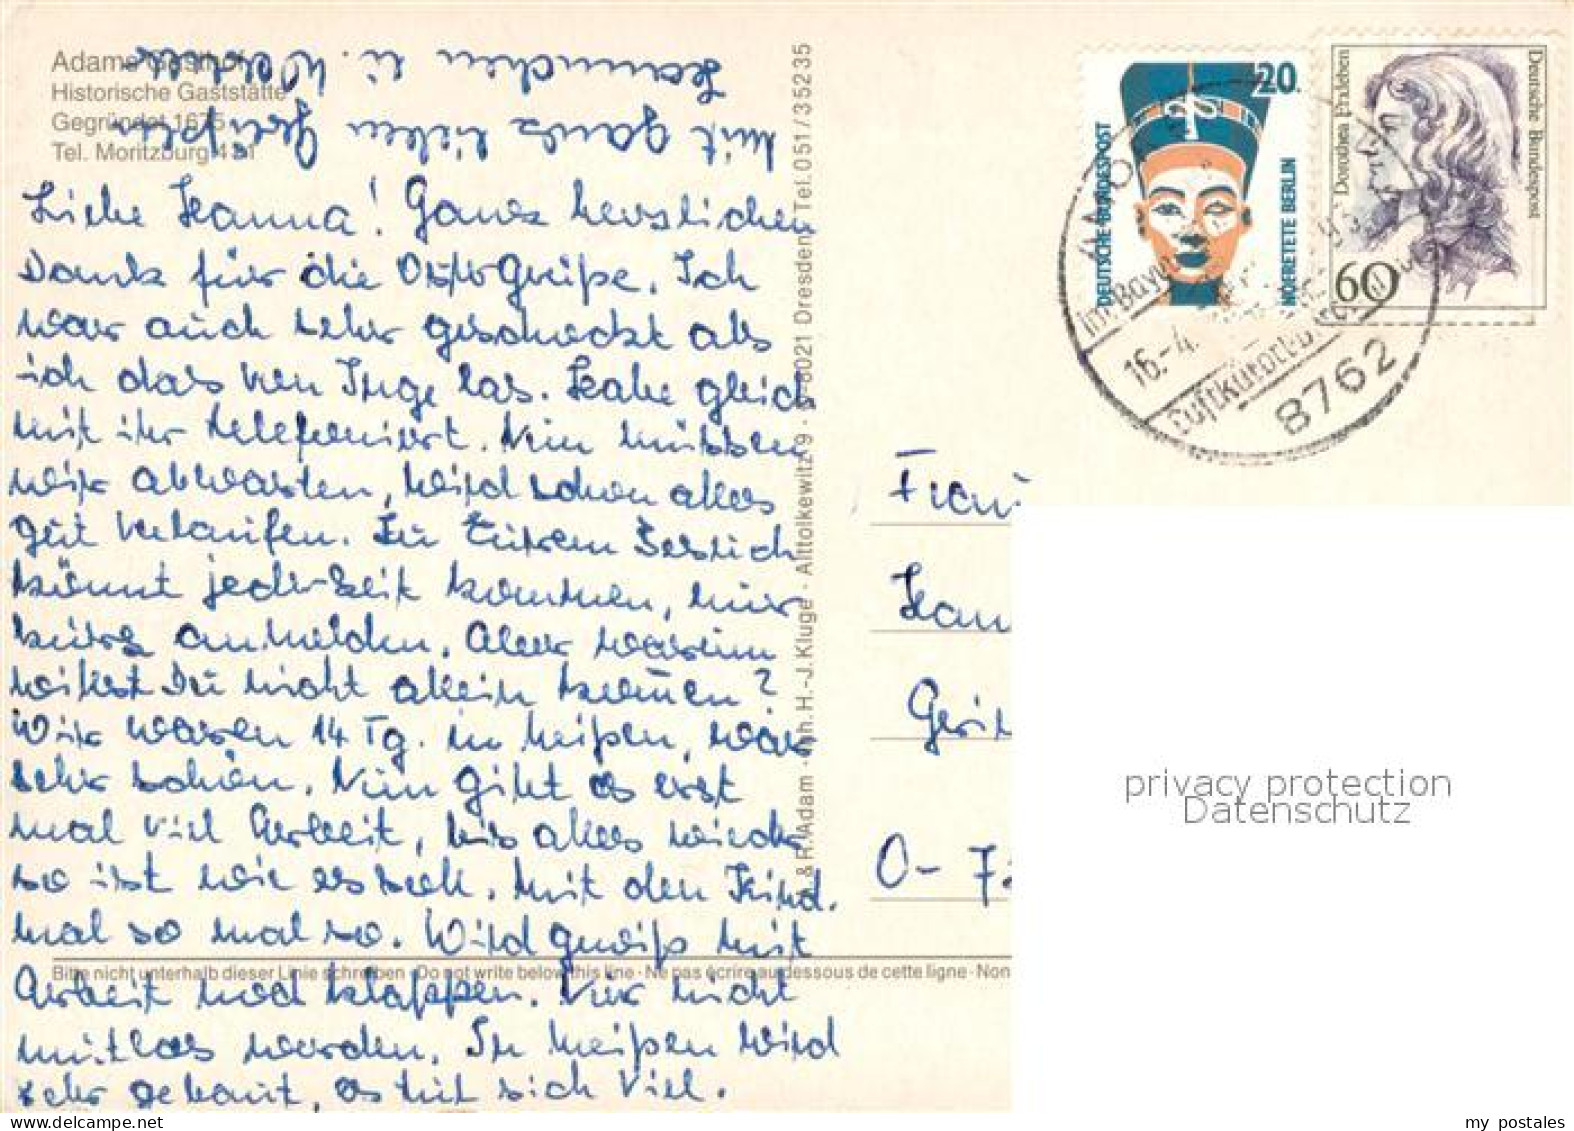 Adams Gasthof
Historische Gaststätte
Gegründet 1675
Tel. Moritzburg
Liebe Hanna! Ganz herzlichen
Dank für die Ostergrüße. Ich
war auch sehr geschockt als
ich das von Inge las. Habe gleich
mit ihr telefoniert. Nun müssen
wir abwarten, wird schon alles
gut verlaufen. Zu Eurem Besuch
könnt jederzeit kommen, nur
kurz anmelden. Aber warum
willst Du nicht allein kommen?
Wir waren 14 Tg. in Meißen, war
sehr schön. Nun gibt es erst
mal viel Arbeit, bis alles wieder
so ist wie es soll. Mit den Kind.
mal so mal so. Wird gewiß mit
Arbeit noch klappen. Nur nicht
mutlos werden. In Meißen wird
sehr gebaut, es tut sich viel.
Mit ganz lieben Grüßen
Hannchen u. Werner
A. & R. Adam · Inh. H.-J. Kluge · Alttolkewitz 9 · 8021 Dresden, Tel. 051/35235
Bitte nicht unterhalb dieser Linie schreiben · Do not write below this line · Ne pas écrire au dessous de cette ligne · Non
DEUTSCHE BUNDESPOST
20
NOFRETETE BERLIN
Dorothea Erxleben
Deutsche Bundespost
60
16.-4.
8762
Frau
Han
Gerit
O-72
privacy protection
Datenschutz
my postales